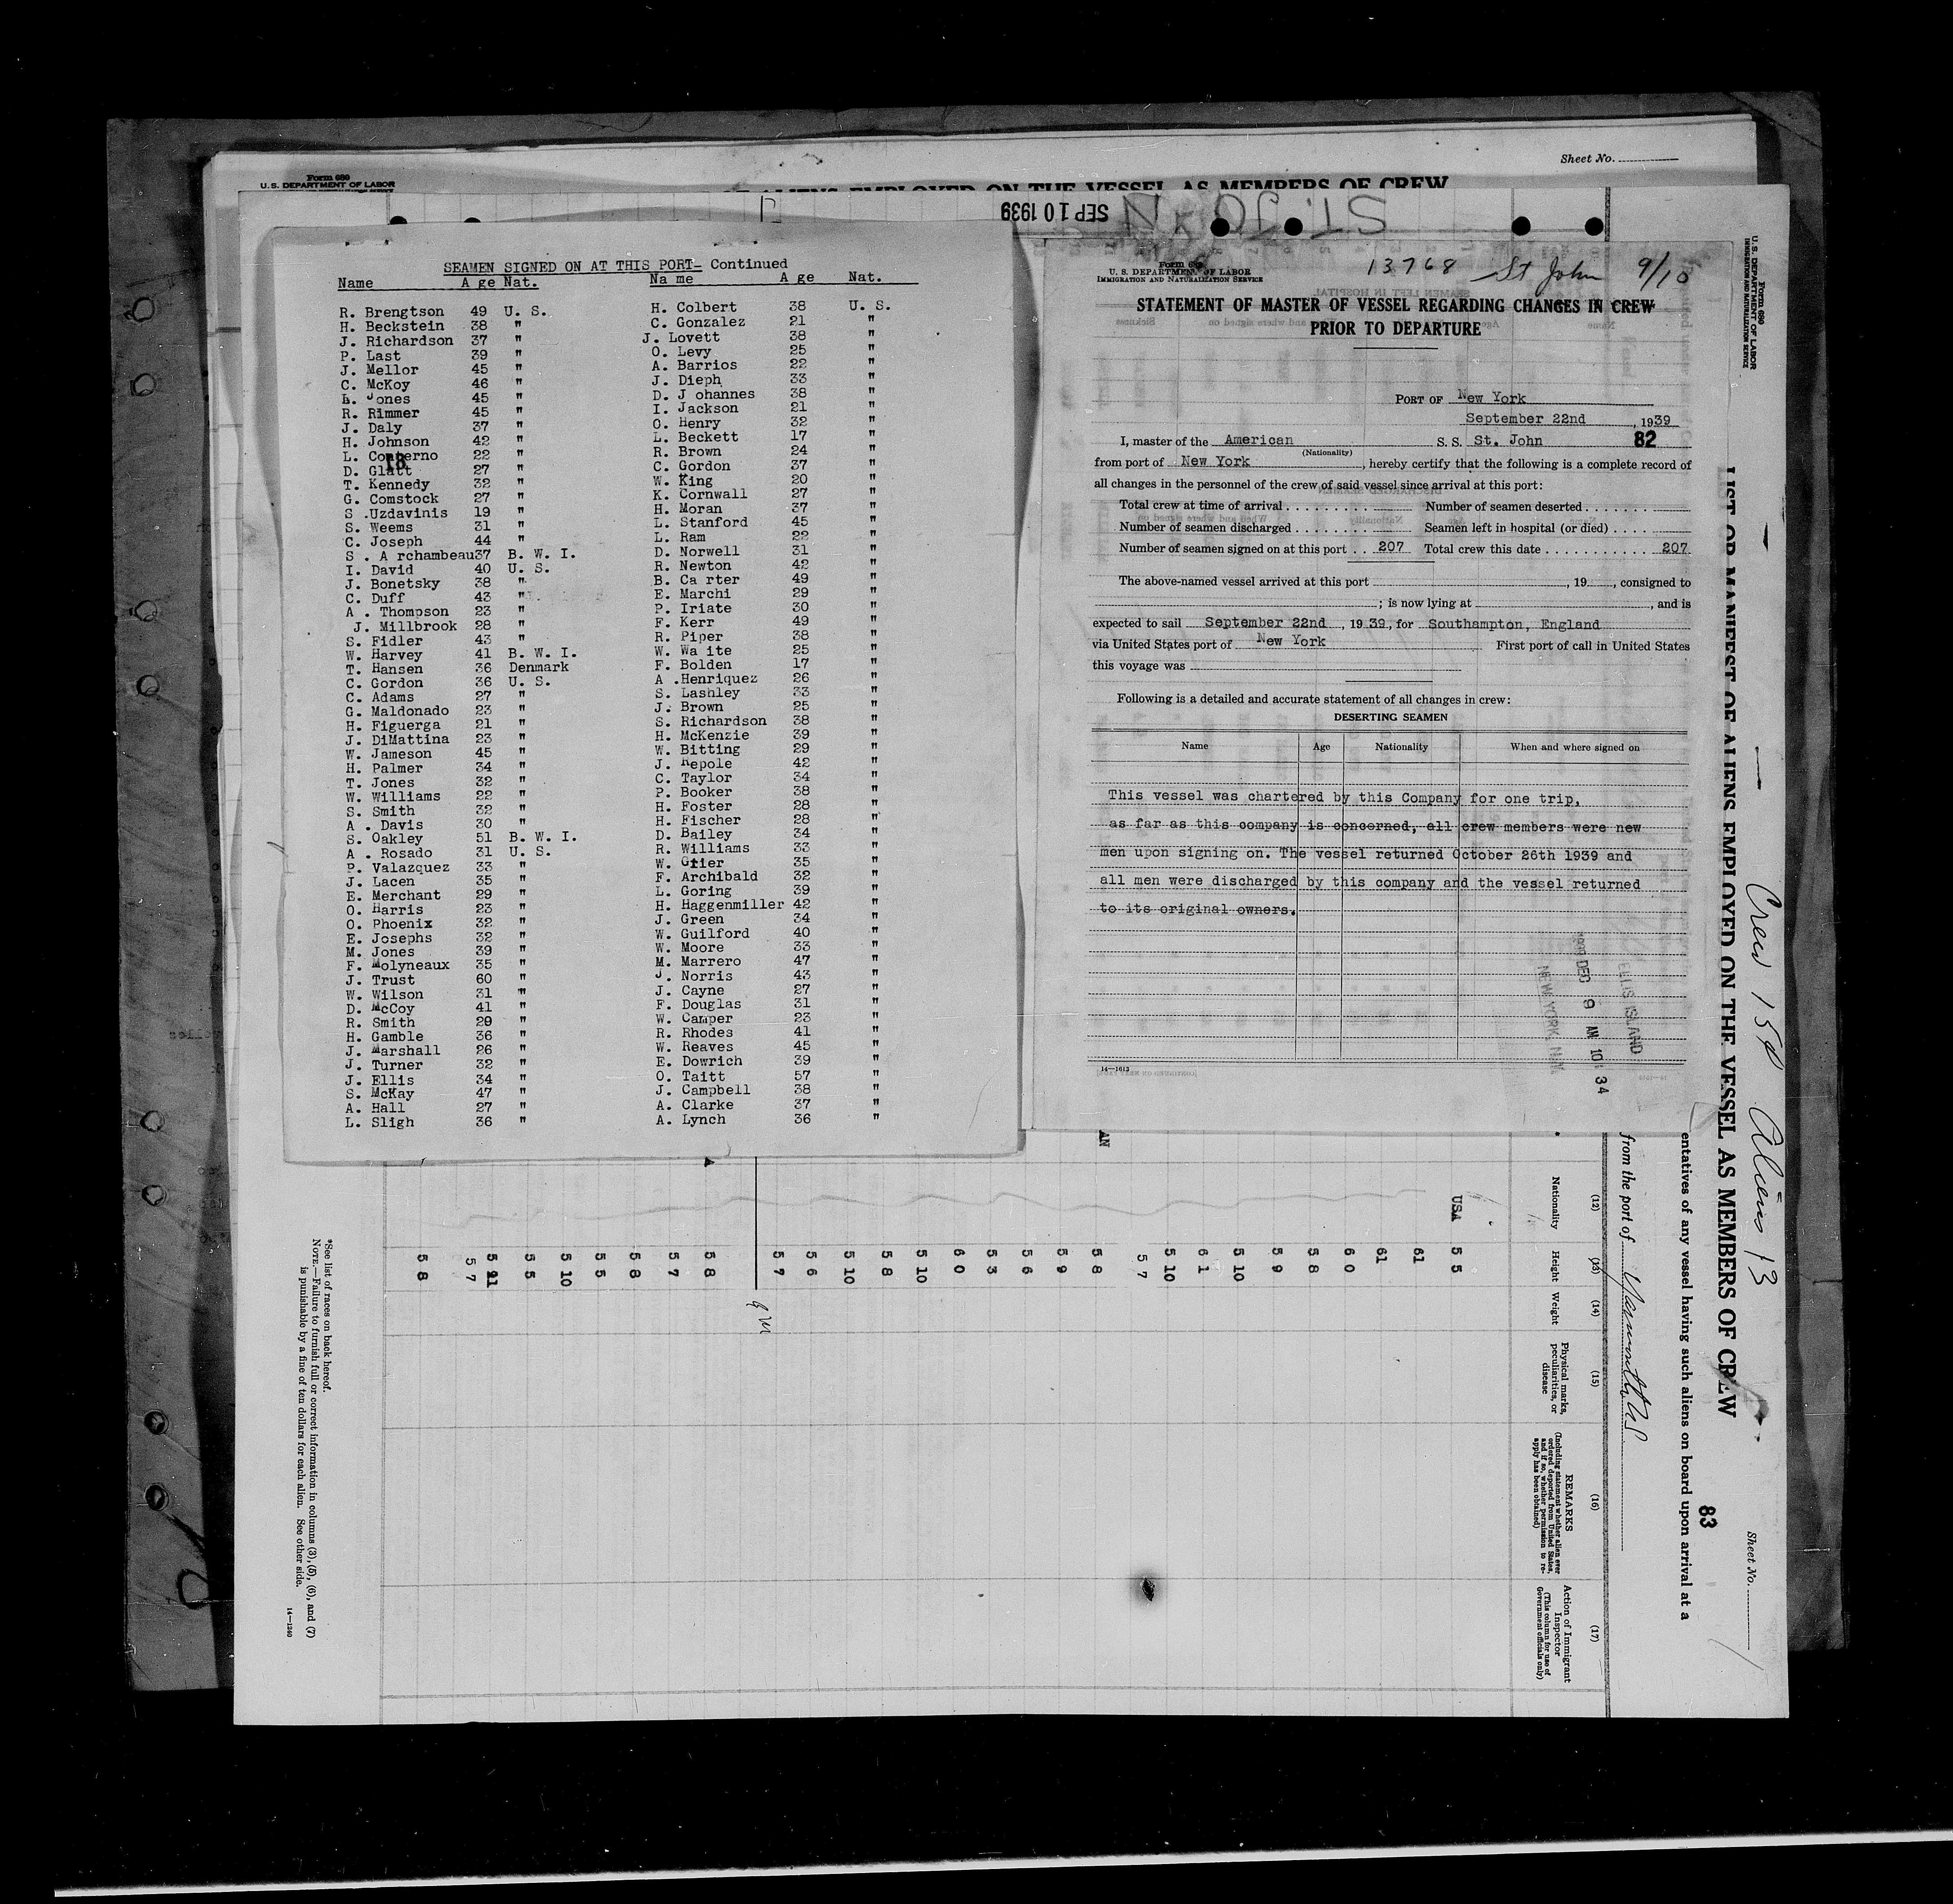 Sheet No.
Form 680
U. S. DEPARTMENT OF LABOR
OF ALIENS EMPLOYED ON THE VESSEL AS MEMBERS OF CREW
SEP 10 1939
ST. JOHN
SEAMEN SIGNED ON AT THIS PORT- Continued
Name A ge Nat. Na me A ge Nat.
R. Brengtson 49 U. S. H. Colbert 38 U. S.
H. Beckstein 38 " C. Gonzalez 21 "
J. Richardson 37 " J. Lovett 38 "
P. Last 39 " O. Levy 25 "
J. Mellor 45 " A. Barrios 22 "
C. McKoy 46 " J. Dieph 33 "
L. Jones 45 " D. J ohannes 38 "
R. Rimmer 45 " I. Jackson 21 "
J. Daly 37 " O. Henry 32 "
H. Johnson 42 " L. Beckett 17 "
L. Conterno 22 " R. Brown 24 "
81
D. Glatt 27 " C. Gordon 37 "
T. Kennedy 32 " W. King 20 "
G. Comstock 27 " K. Cornwall 27 "
S .Uzdavinis 19 " H. Moran 37 "
S. Weems 31 " L. Stanford 45 "
C. Joseph 44 " L. Ram 22 "
S . A rchambeau37 B. W. I. D. Norwell 31 "
I. David 40 U. S. R. Newton 42 "
J. Bonetsky 38 " B. Ca rter 49 "
C. Duff 43 " E. Marchi 29 "
A . Thompson 23 " P. Iriate 30 "
J. Millbrook 28 " F. Kerr 49 "
S. Fidler 43 " R. Piper 38 "
W. Harvey 41 B. W. I. W. Wa ite 25 "
T. Hansen 36 Denmark F. Bolden 17 "
C. Gordon 36 U. S. A .Henriquez 26 "
C. Adams 27 " S. Lashley 33 "
G. Maldonado 23 " J. Brown 25 "
H. Figuerga 21 " S. Richardson 38 "
J. DiMattina 23 " H. McKenzie 39 "
W. Jameson 45 " W. Bitting 29 "
H. Palmer 34 " J. Repole 42 "
T. Jones 32 " C. Taylor 34 "
W. Williams 22 " P. Booker 38 "
S. Smith 32 " H. Foster 28 "
A . Davis 30 " H. Fischer 28 "
S. Oakley 51 B. W. I. D. Bailey 34 "
A . Rosado 31 U. S. R. Williams 33 "
P. Valazquez 33 " W. Grier 35 "
J. Lacen 35 " F. Archibald 32 "
E. Merchant 29 " L. Goring 39 "
O. Harris 23 " H. Haggenmiller 42 "
O. Phoenix 32 " J. Green 34 "
E. Josephs 32 " W. Guilford 40 "
M. Jones 39 " W. Moore 33 "
F. Molyneaux 35 " M. Marrero 47 "
J. Trust 60 " J. Norris 43 "
W. Wilson 31 " J. Cayne 27 "
D. McCoy 41 " F. Douglas 31 "
R. Smith 29 " W. Camper 23 "
H. Gamble 36 " R. Rhodes 41 "
J. Marshall 26 " W. Reaves 45 "
J. Turner 32 " E. Dowrich 39 "
J. Ellis 34 " O. Taitt 57 "
S. McKay 47 " J. Campbell 38 "
A. Hall 27 " A. Clarke 37 "
L. Sligh 36 " A. Lynch 36 "
U. S. DEPARTMENT OF LABOR
IMMIGRATION AND NATURALIZATION SERVICE
13768 St John 9/10
STATEMENT OF MASTER OF VESSEL REGARDING CHANGES IN CREW
PRIOR TO DEPARTURE
PORT OF New York
September 22nd, 1939
I, master of the American S. S. St. John 82
(Nationality)
from port of New York, hereby certify that the following is a complete record of
all changes in the personnel of the crew of said vessel since arrival at this port:
Total crew at time of arrival Number of seamen deserted
Number of seamen discharged Seamen left in hospital (or died)
Number of seamen signed on at this port 207 Total crew this date 207
The above-named vessel arrived at this port , 19 , consigned to
; is now lying at , and is
expected to sail September 22nd, 1939, for Southampton, England
via United States port of New York First port of call in United States
this voyage was
Following is a detailed and accurate statement of all changes in crew:
DESERTING SEAMEN
Name Age Nationality When and where signed on
This vessel was chartered by this Company for one trip,
as far as this company is concerned, all crew members were new
men upon signing on. The vessel returned October 26th 1939 and
all men were discharged by this company and the vessel returned
to its original owners.
14—1613
1939 DEC 9 AM 10 34
ELLIS ISLAND
NEW YORK, N.Y.
Form 680
U. S. DEPARTMENT OF LABOR
IMMIGRATION AND NATURALIZATION SERVICE
LIST OR MANIFEST OF ALIENS EMPLOYED ON THE VESSEL AS MEMBERS OF CREW
Crew 158 Aliens 13
Sheet No.
83
entatives of any vessel having such aliens on board upon arrival at a
from the port of Yarmouth NS
(12) (13) (14) (15) (16) (17)
Nationality
Height
Weight
Physical marks, peculiarities, or disease
REMARKS
(Including statement whether alien ever ordered deported from United States, and if so, whether permission to reapply has been obtained)
Action of Immigrant Inspector
(This column for use of Government officials only)
USA
5 5
61
61
6 0
5 8
5 9
5 10
6 1
5 10
5 7
5 8
5 9
5 6
5 3
6 0
5 10
5 8
5 10
5 6
5 7
5 8
5 7
5 8
5 5
5 10
5 5
5 7
5 8
*See list of races on back hereof.
NOTE.—Failure to furnish full or correct information in columns (3), (5), (6), and (7)
is punishable by a fine of ten dollars for each alien. See other side.
14—1240